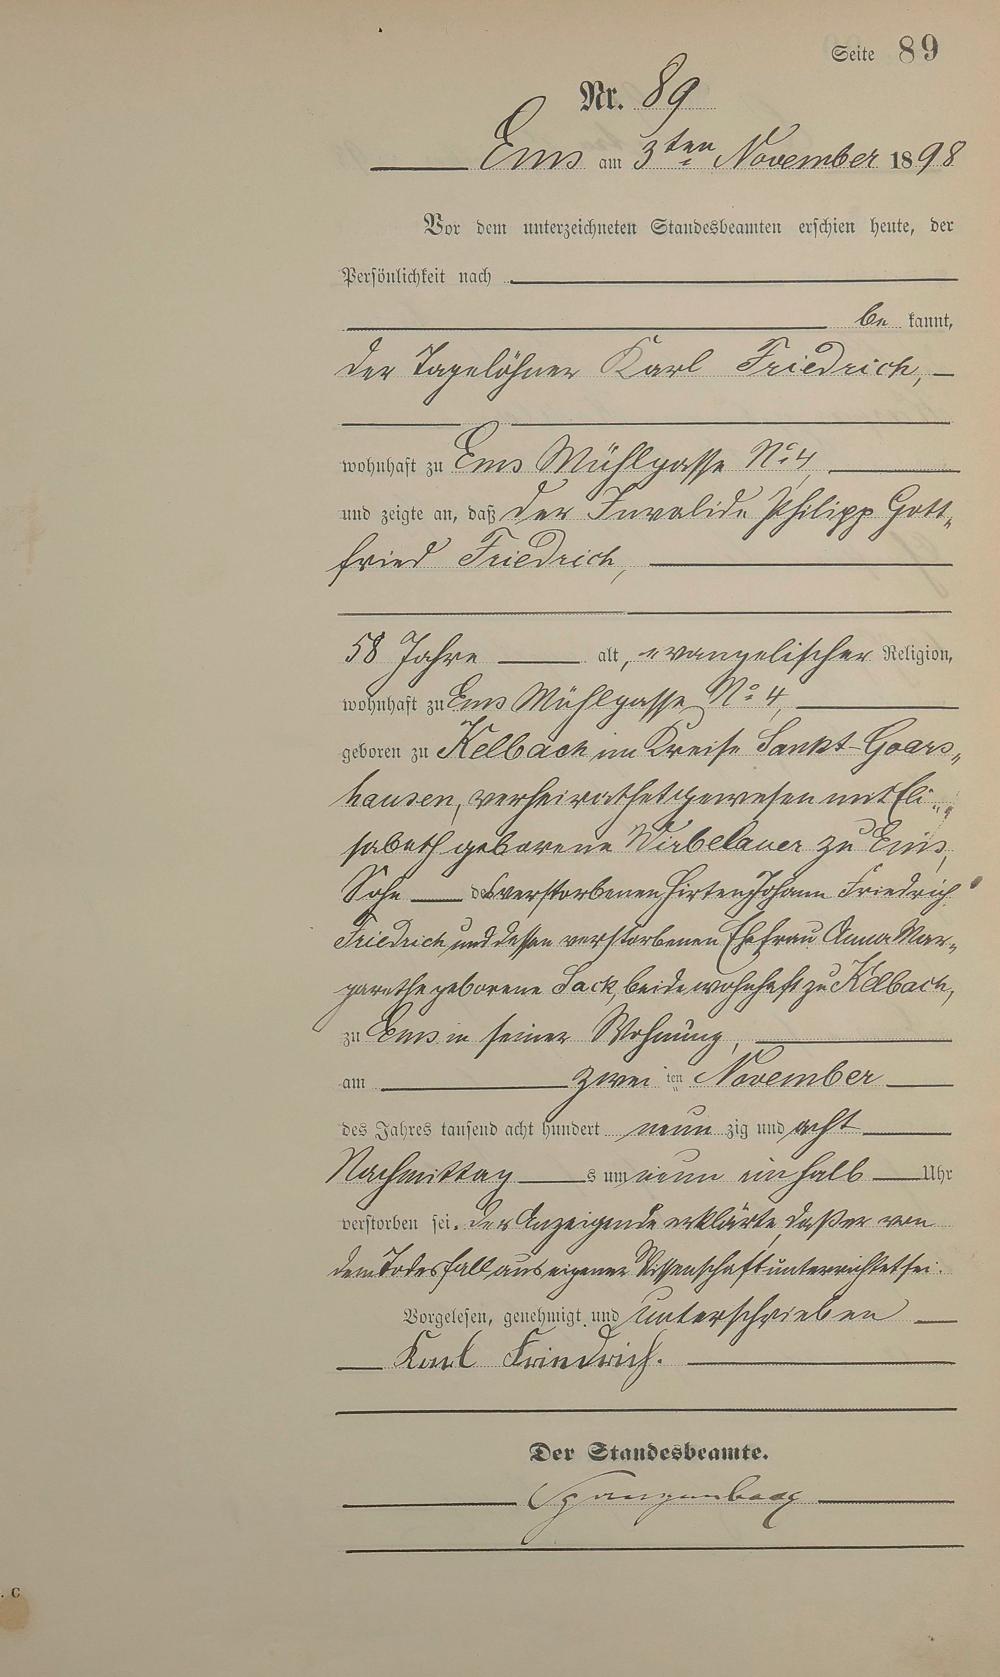 Seite 89
Nr. 89
Ems am 3ten November 1898
Vor dem unterzeichneten Standesbeamten erschien heute, der
Persönlichkeit nach
be kannt,
der Tagelöhner Karl Friedrich,
wohnhaft zu Ems Mühlgasse No 4
und zeigte an, daß der Invalide Philipp Gott-
fried Friedrich,
58 Jahre alt, evangelischer Religion,
wohnhaft zu Ems Mühlgasse No 4,
geboren zu Kelbach im Kreise Sankt-Goars-
hausen, verheirathet gewesen mit Eli-
sabeth geborene Wirbelauer zu Ems,
Sohn des verstorbenen Hirten Johann Friedrich
Friedrich und dessen verstorbenen Ehefrau Anna Mar-
garethe geborene Sack, beide wohnhaft zu Kelbach,
zu Ems in seiner Wohnung,
am zwei ten November
des Jahres tausend acht hundert neun zig und acht
Nachmittag s um neun einhalb Uhr
verstorben sei. Der Anzeigende erklärte, daß er von
dem Todesfall aus eigener Wissenschaft unterrichtet sei.
Vorgelesen, genehmigt und unterschrieben
Karl Friedrich.
Der Standesbeamte.
Spangenberg
. C